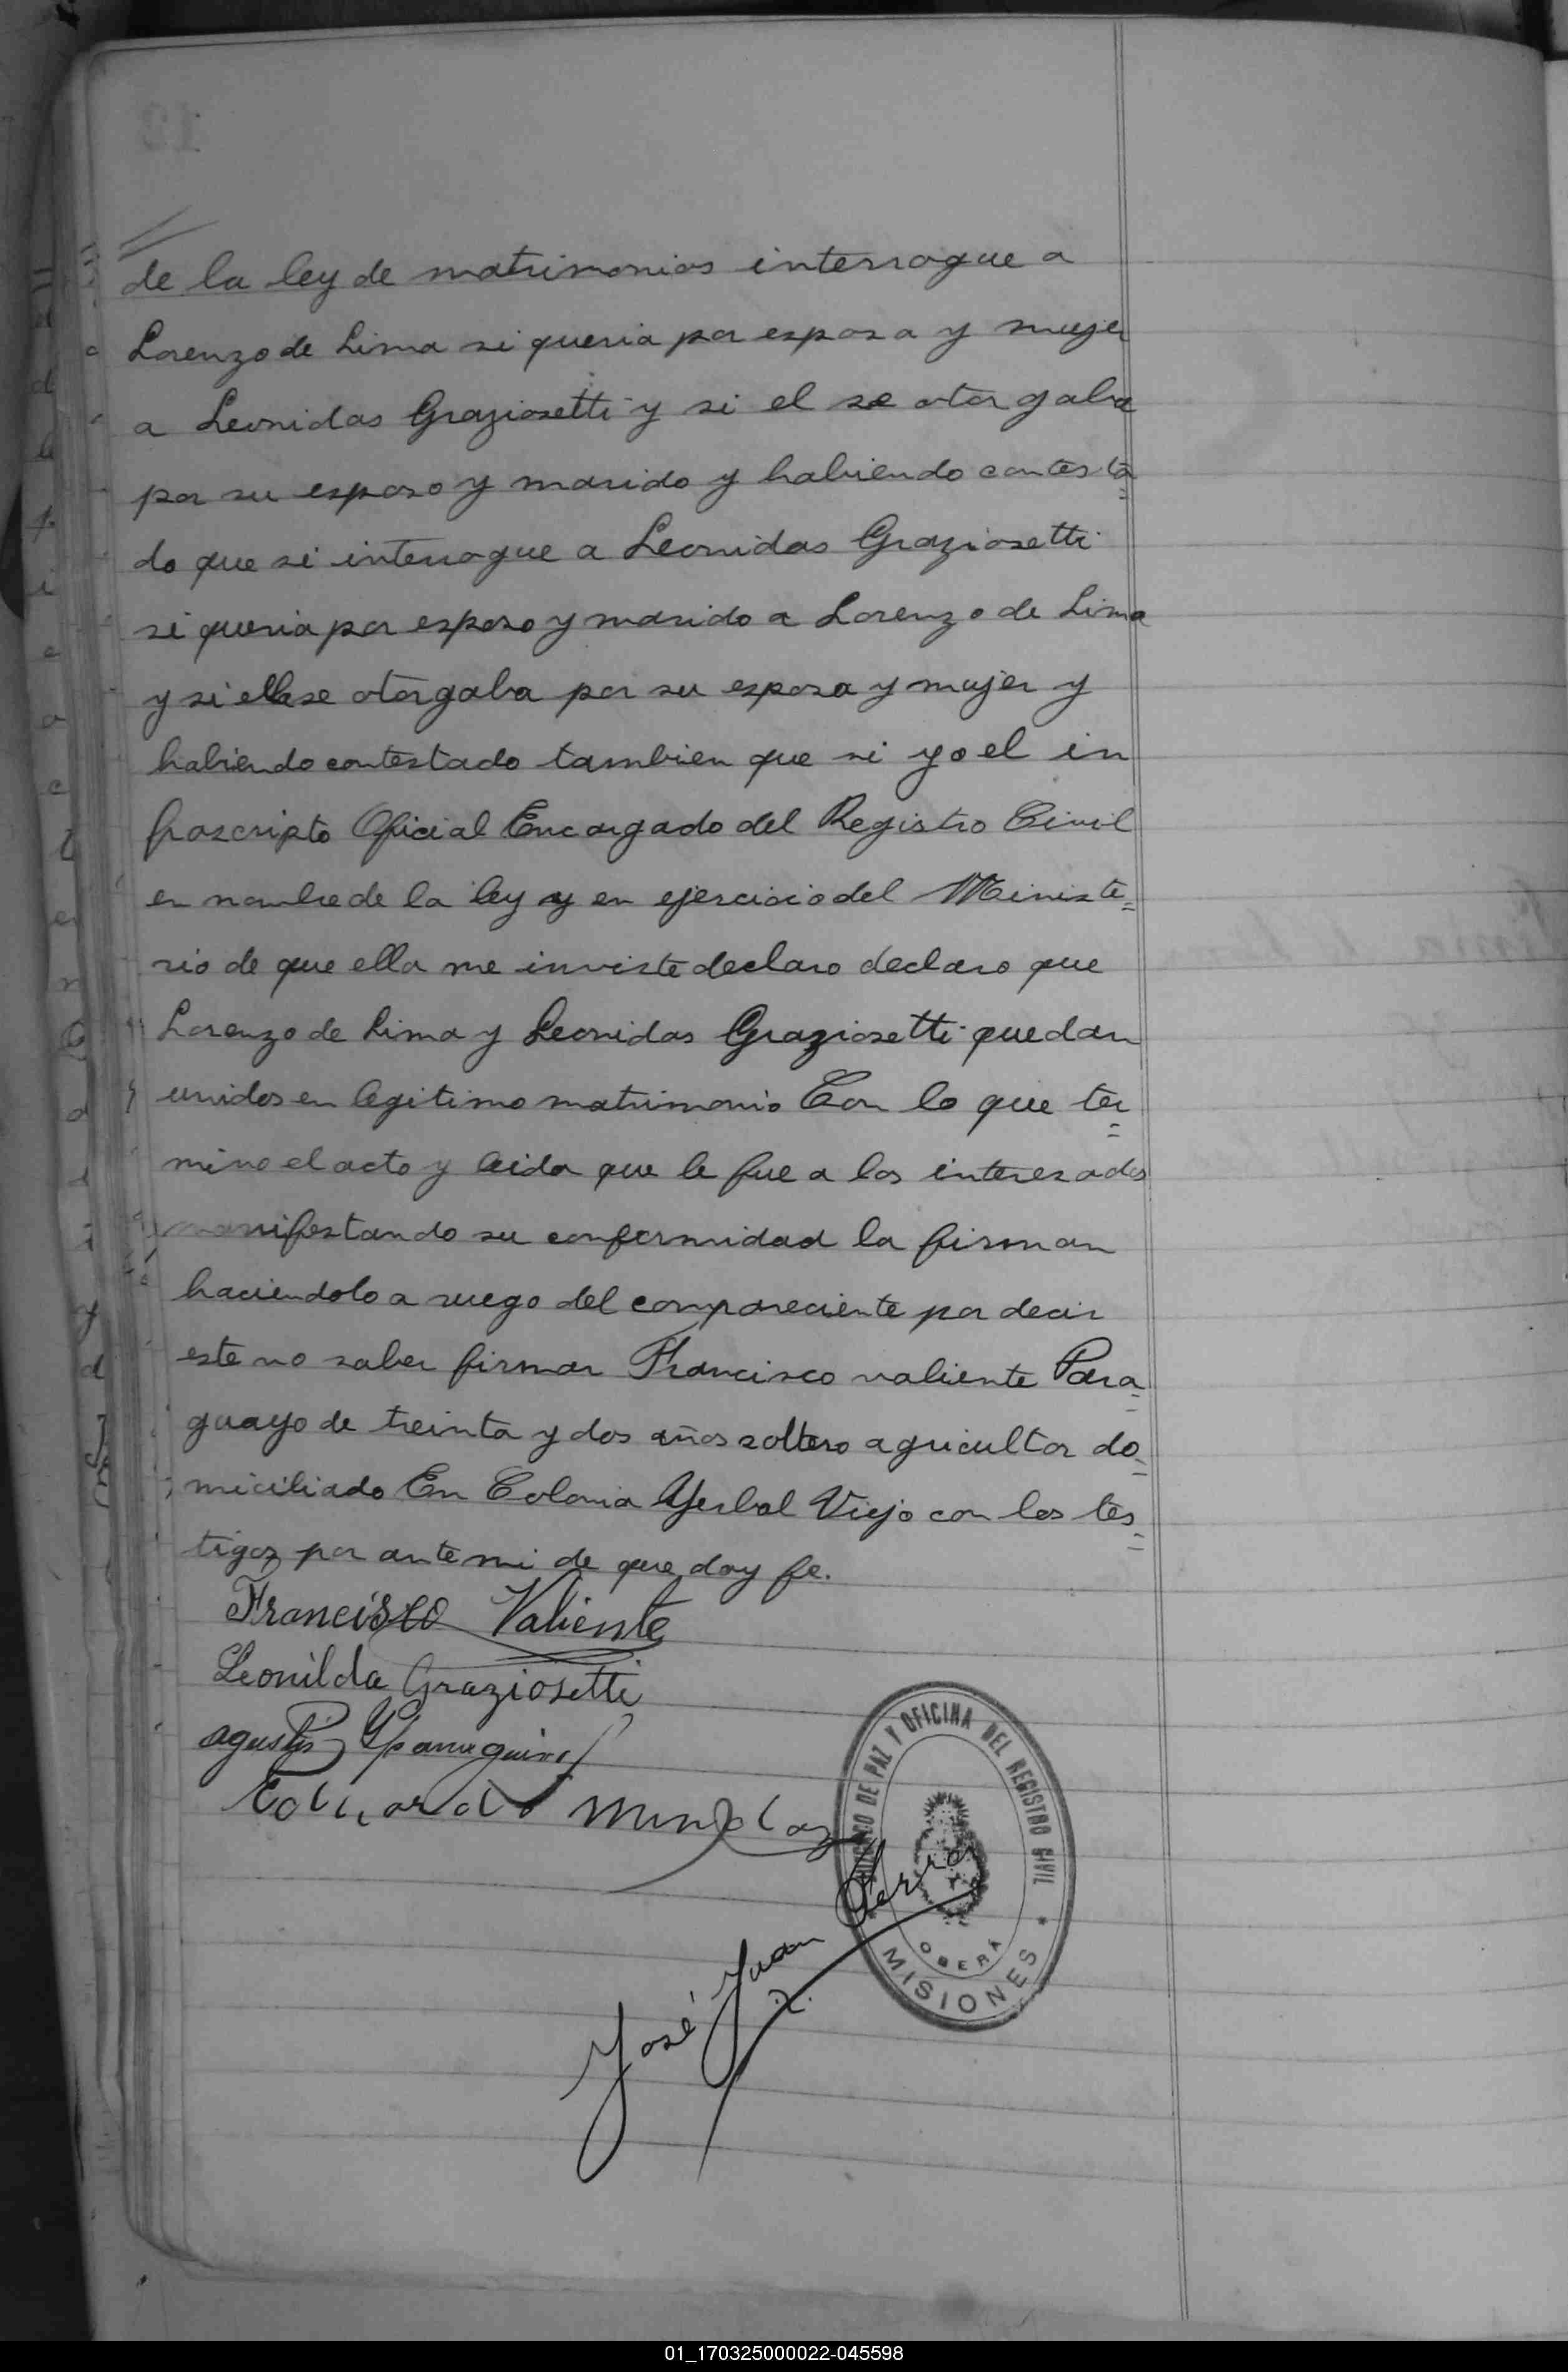 de la ley de matrimonios interrogue a
Lorenzo de Lima si queria por esposa y mujer
a Leonidas Graziosetti y si el se otorgaba
por su esposo y marido y habiendo contesta=
do que si interrogue a Leonidas Graziosetti
si queria por esposo y marido a Lorenzo de Lima
y si ella se otorgaba por su esposa y mujer y
habiendo contestado tambien que si yo el in
frascripto Oficial Encargado del Registro Civil
en nombre de la ley y en ejercicio del Ministe=
rio de que ella me inviste declaro declaro que
Lorenzo de Lima y Leonidas Graziosetti quedan
unidos en legitimo matrimonio Con lo que ter=
mino el acto y leida que le fue a los interesados
manifestando su conformidad la firman
haciendolo a ruego del compareciente por decir
este no saber firmar Francisco valiente Para=
guayo de treinta y dos años soltero agricultor do=
miciliado En Colonia Yerbal Viejo con los tes=
tigos por ante mi de que doy fe.
Francisco Valiente
Leonilda Graziosetti
agustin
Eduardo
José Juan
JUZGADO DE PAZ Y OFICINA DEL REGISTRO CIVIL
OBERÁ
* MISIONES *
01_170325000022-045598